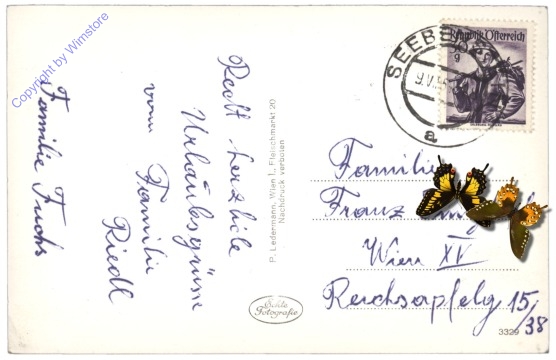 Copyright by Wimstore
Recht herzliche
Urlaubsgrüsse
vom Familie
Riedl
Familie Fuchs
P. Ledermann, Wien I., Fleischmarkt 20
Nachdruck verboten
Echte
Fotografie
Republik Österreich
SEEB
9.V.
a
Familie
Franz
Wien XV
Reichsapfelg 15/38
3329